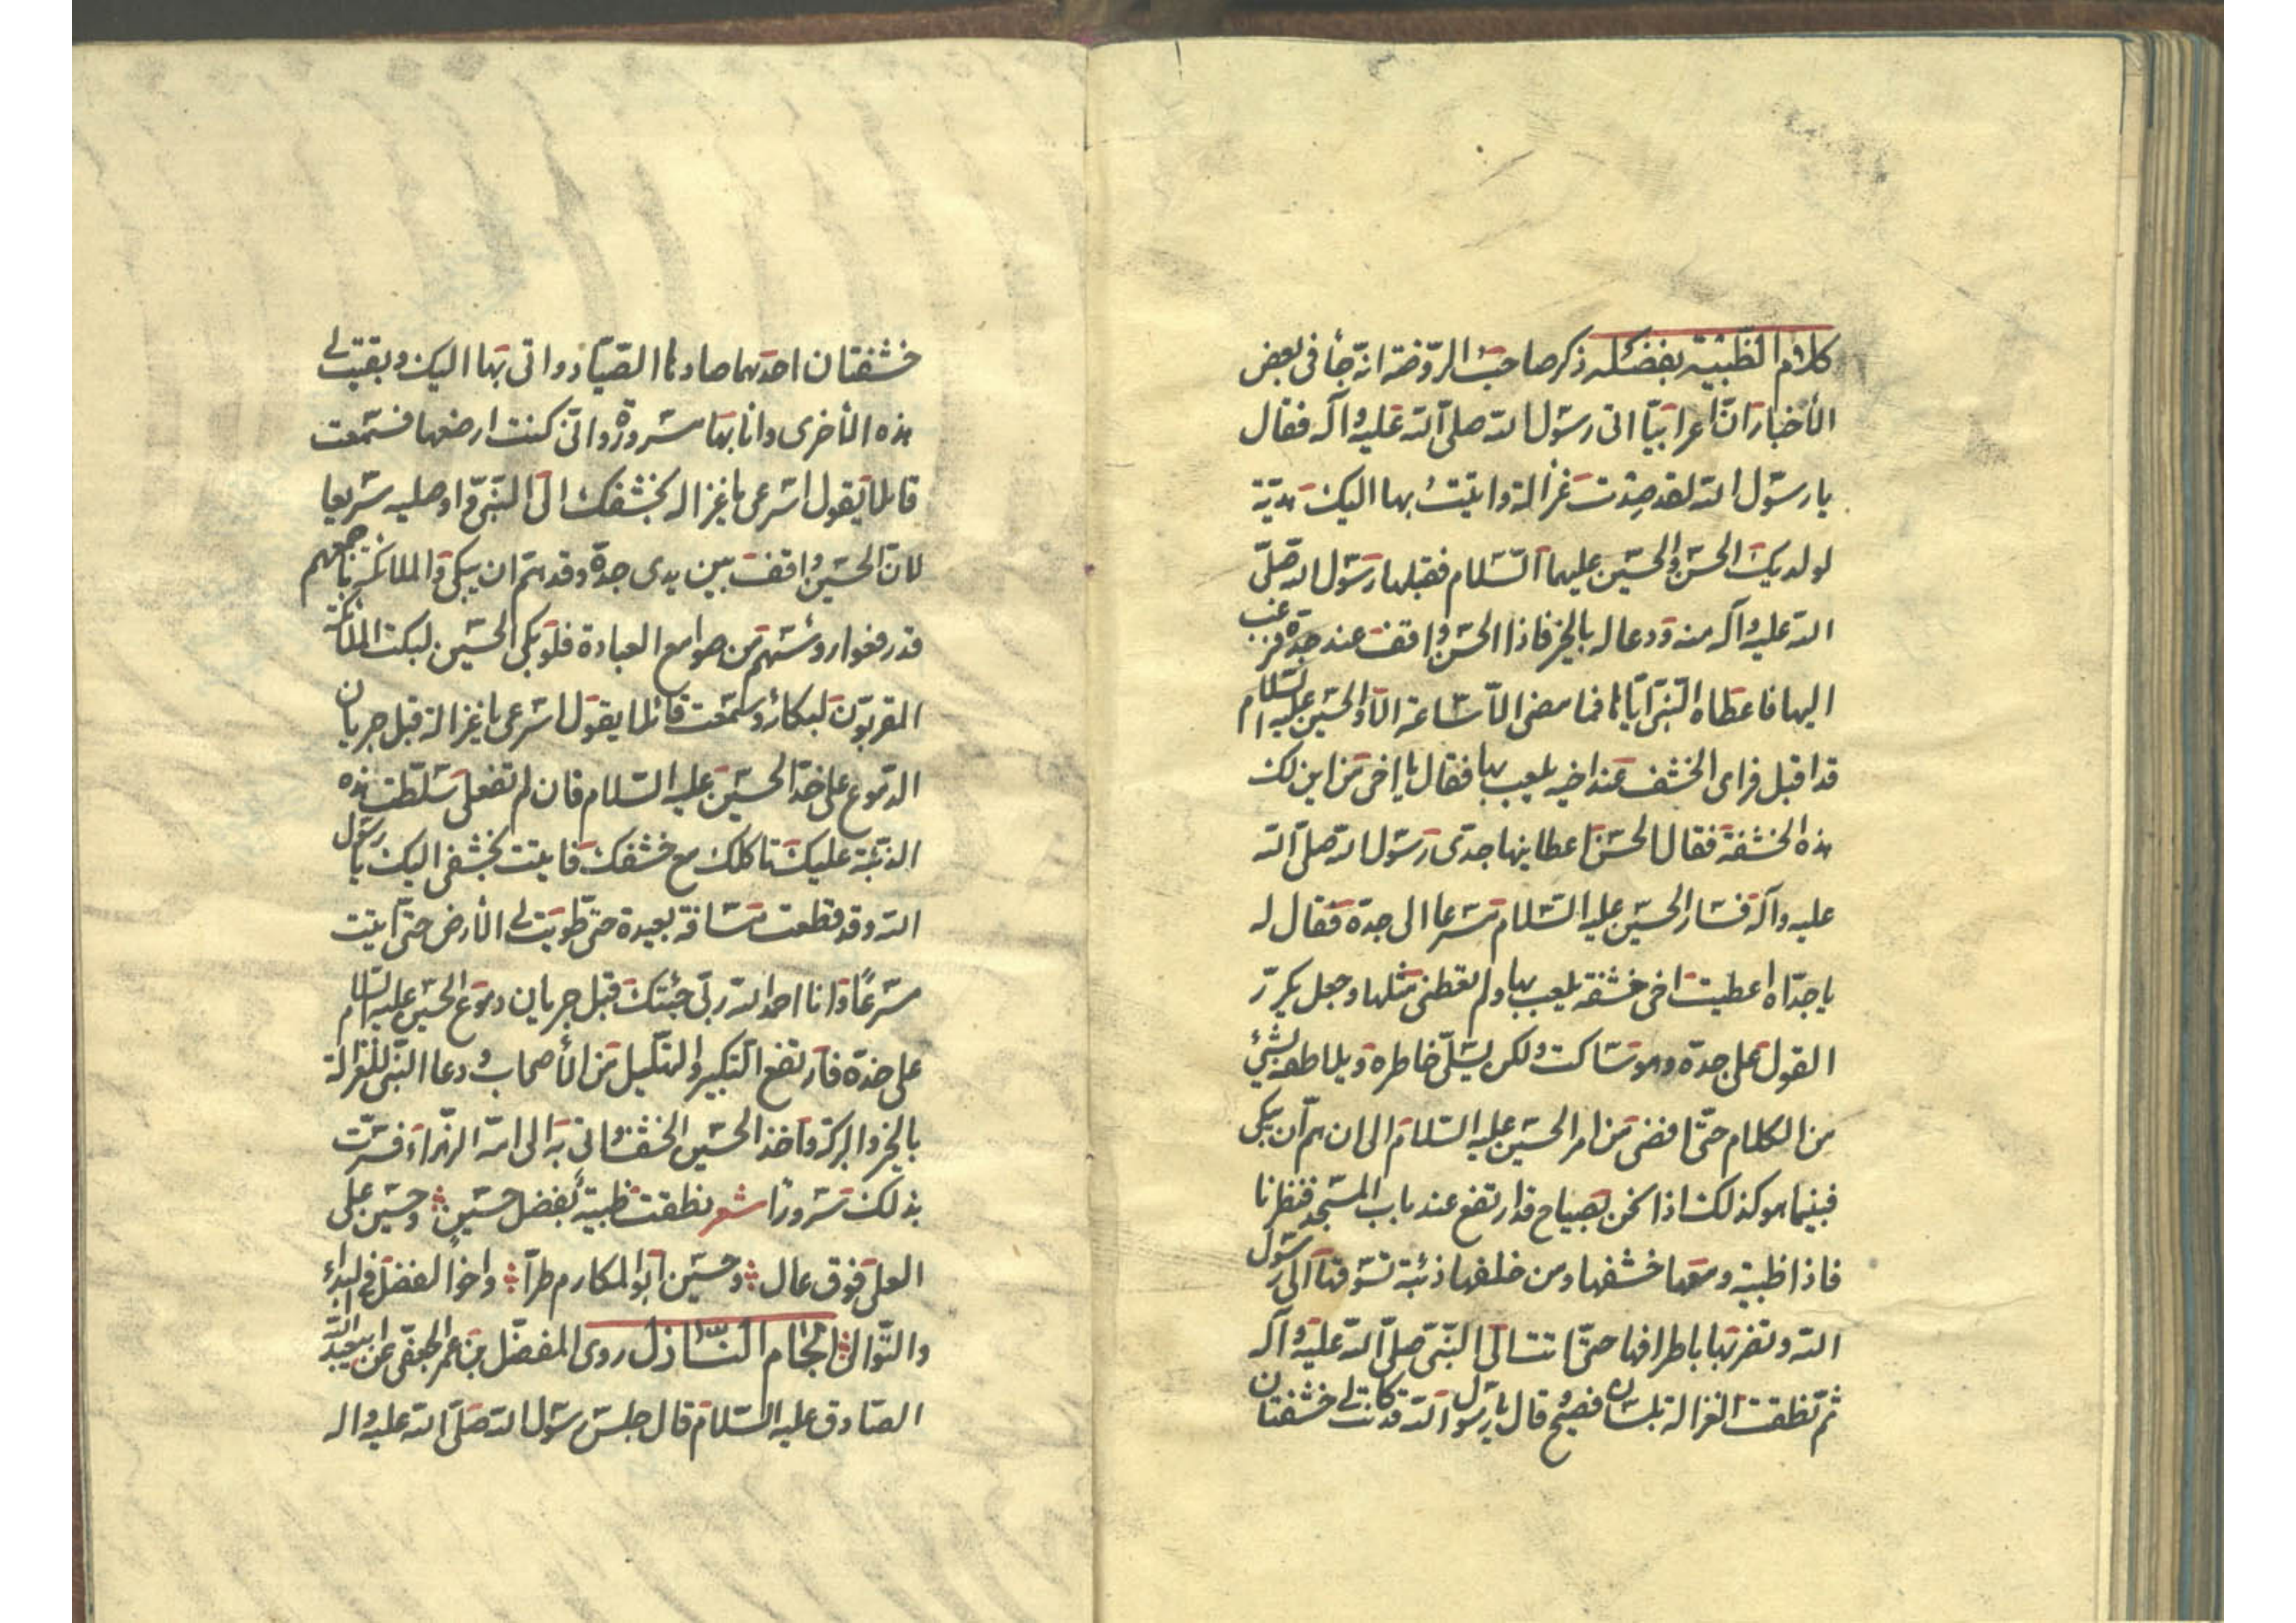 كلام الظبية بفضله ذكر صاحب الروضة انه جأ في بعض
الأخبار انّ اعرابيّا اتى رسول الله صلى الله عليه وآله فقال
يا رسول الله لقد صِدت غزالة واتيتُ بها اليك هديّة
لولديك الحسن والحسين عليهما السّلام فقبلها رسول الله صلّى
الله عليه وآله منه ودعا له بالخير فاذا الحسن واقف عند جدّه فرغب
اليها فاعطاه النبىّ ايّاها فما مضى الّا ساعة الّا والحسين عليه السلام
قد اقبل فراى الخشف عند اخيه يلعب بها فقال يا اخى من اين لك
هذه الخشفة فقال الحسن اعطانيها جدّى رسول الله صلّى الله
عليه وآله فسار الحسين عليه السّلام مسرعا الى جدّه فقال له
يا جدّاه اعطيت اخى خشفة يلعب بها ولم تعطنى مثلها وجعل يكرّر
القول على جدّه وهو ساكت ولكن يسلّى خاطره ويلاطفه بشئ
من الكلام حتّى افضى من امر الحسين عليه السّلام الى ان همّ ان يبكى
فبينما هو كذلك اذا نحن بصياح قد ارتفع عند باب المسجد فنظرنا
فاذا ظبية ومعها خشفها ومن خلفها ذئبة تسوقها الى رسول
الله وتضربها باطرافها حتّى اتت الى النبّى صلّى الله عليه وآله
ثم نطقت الغزالة بلسان فصيح قال يا رسول الله قد كانت لى خشفتان
خشفتان احدهما صادها الصيّاد واتى بها اليك وبقيت لى
هذه الأخرى وانا بها مسرورة وانّى كنت ارضعها فسمعت
قائلا يقول اسرعى يا غزالة بخشفك الى النبّى واوصليه سريعا
لانّ الحسين واقف بين يدى جدّه وقد همّ ان يبكى والملائكة باجمعهم
قد رفعوا رؤسهم من صوامع العبادة فلو بكى الحسين لبكت الملائكة
المقربون لبكائه وسمعت قائلا يقول اسرعى يا غزالة قبل جريان
الدموع على خدّ الحسين عليه السّلام فان لم تفعلى سلّطت هذه
الذئبة عليك تاكلك مع خشفك فاتيت بخشفى اليك يا رسول
الله وقد قطعت مسافة بعيدة حتّى طويت لى الأرض حتّى اتيت
مسرعًا وانا احمد الله ربّى جئتك قبل جريان دموع الحسين عليه السلام
على خدّه فارتفع التكبير والتهليل من الأصحاب ودعا النبّى للغزالة
بالخير والبركة واخذ الحسين الخشف واتى به الى امّه الزّهراء فسرّت
بذلك سرورًا شعر نطقت ظبية بفضل حسين ؞ وحسين على
العلى فوق عال ؞ وحسين ابو المكارم طرّا ؞ واخو الفضل فى البداء
والنّوال ؞ الجام النّازل روى المفضّل بن عمر الجعفى عن ابيعبد الله
الصّادق عليه السّلام قال جلس رسول الله صلّى الله عليه واله